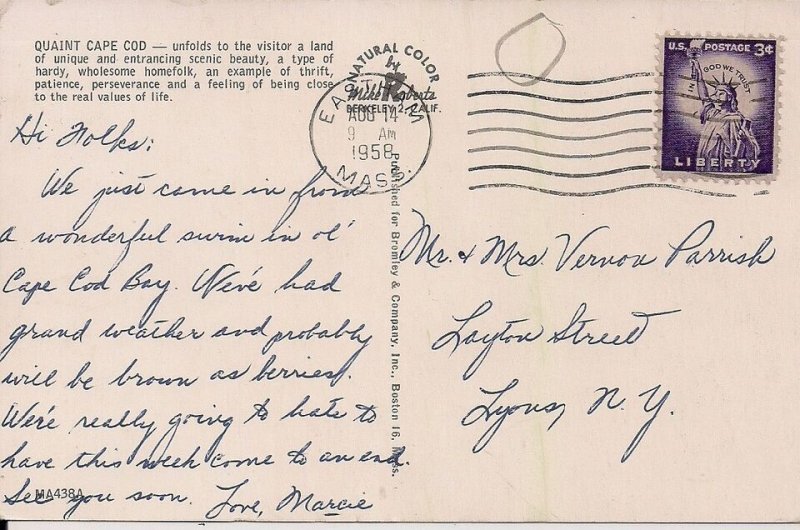 QUAINT CAPE COD — unfolds to the visitor a land
of unique and entrancing scenic beauty, a type of
hardy, wholesome homefolk, an example of thrift,
patience, perseverance and a feeling of being close
to the real values of life.
NATURAL COLOR
by
Mike Roberts
BERKELEY 2, CALIF.
AUG 14
9 AM
1958
MASS.
U.S. POSTAGE 3¢
IN GOD WE TRUST
LIBERTY
Hi Folks:
We just came in from
a wonderful swim in ol'
Cape Cod Bay. We've had
grand weather and probably
will be brown as berries.
We're really going to hate to
have this week come to an end.
See you soon. Love, Marcie
MA438A
Published for Bromley & Company, Inc., Boston 16, Mass.
Mr. & Mrs. Vernon Parrish
Layton Street
Lyons, N.Y.